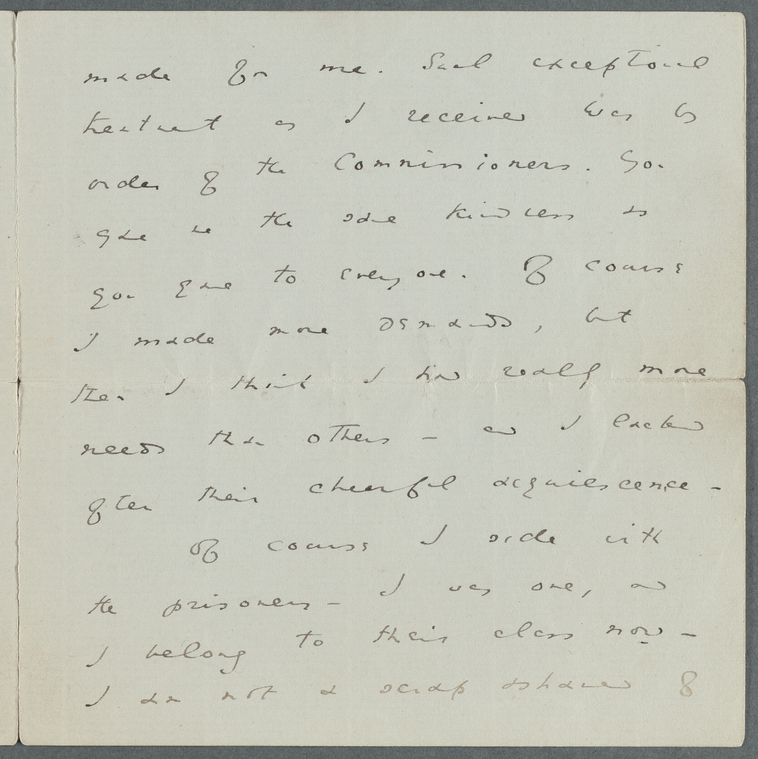 made for me. Such exceptional
treatment as I received was by
order of the Commissioners. You
gave me the same kindness as
you gave to everyone. Of course
I made more demands, but
then I think I had really more
needs than others – and I lacked
often their cheerful acquiescence –
Of course I side with
the prisoners – I was one, and
I belong to their class now –
I am not a scrap ashamed of